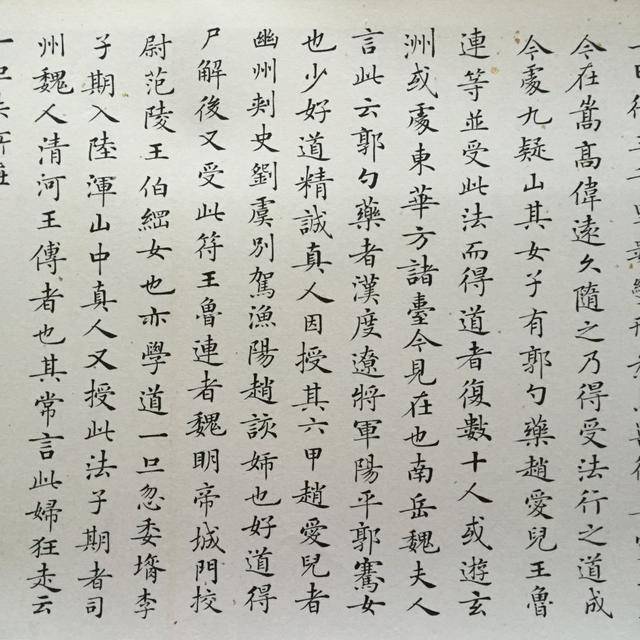 今在嵩高偉遠久隨之乃得受法行之道成
今處九疑山其女子有郭勺藥趙愛兒王魯
連等並受此法而得道者復數十人或遊玄
洲或處東華方諸臺今見在也南岳魏夫人
言此云郭勺藥者漢度遼將軍陽平郭騫女
也少好道精誠真人因授其六甲趙愛兒者
幽州刾史劉虞別駕漁陽趙該姊也好道得
尸解後又受此符王魯連者魏明帝城門校
尉范陵王伯綱女也亦學道一旦忽委壻李
子期入陸渾山中真人又授此法子期者司
州魏人清河王傳者也其常言此婦狂走云